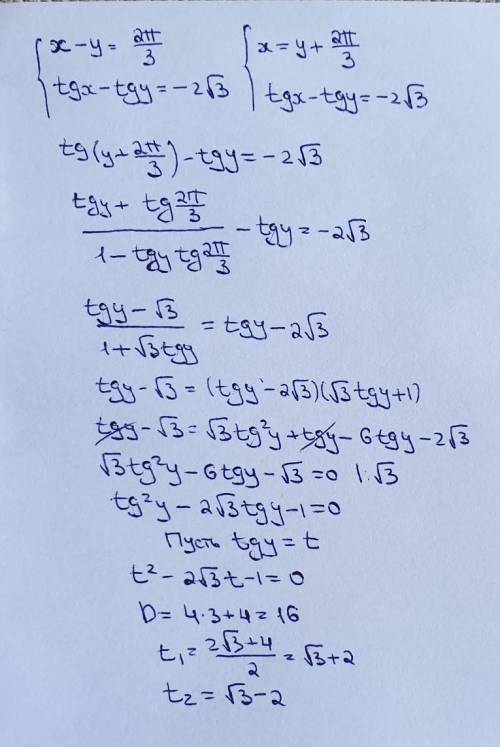 { x-y = 2π/3   { x = y + 2π/3
{ tgx - tgy = -2√3   { tgx - tgy = -2√3
tg(y + 2π/3) - tgy = -2√3
(tgy + tg 2π/3)/(1 - tgy tg 2π/3) - tgy = -2√3
(tgy - √3)/(1 + √3tgy) = tgy - 2√3
tgy - √3 = (tgy - 2√3)(√3tgy + 1)
tgy - √3 = √3tg²y + tgy - 6tgy - 2√3
√3tg²y - 6tgy - √3 = 0 |:√3
tg²y - 2√3tgy - 1 = 0
Пусть tgy = t
t² - 2√3t - 1 = 0
D = 4·3 + 4 = 16
t₁ = (2√3 + 4)/2 = √3 + 2
t₂ = √3 - 2